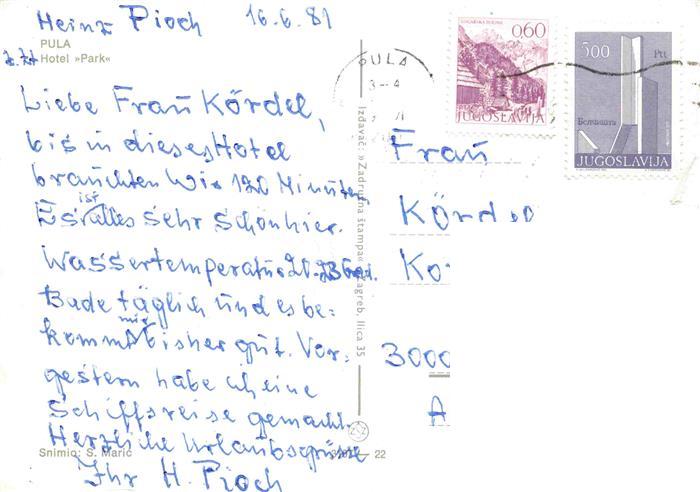 Heinz Pioch 16.6.81
PULA
z. Zt. Hotel »Park«
Liebe Frau Kördel,
bis in dieses Hotel
brauchten Wir 120 Minuten.
Es ist alles sehr schön hier.
Wassertemperatur 21-23 Grad.
Bade täglich und es be=
kommt mir bisher gut. Vor=
gestern habe ich eine
Schiffsreise gemacht.
Herzliche Urlaubsgrüsse
Ihr H. Pioch
Snimio: S. Marić
22
Izdavač: »Zadružna štampa« Zagreb, Ilica 35
PULA
0.60
JUGOSLAVIJA
500
Ptt
JUGOSLAVIJA
Frau
Körd
Ko
3000
A